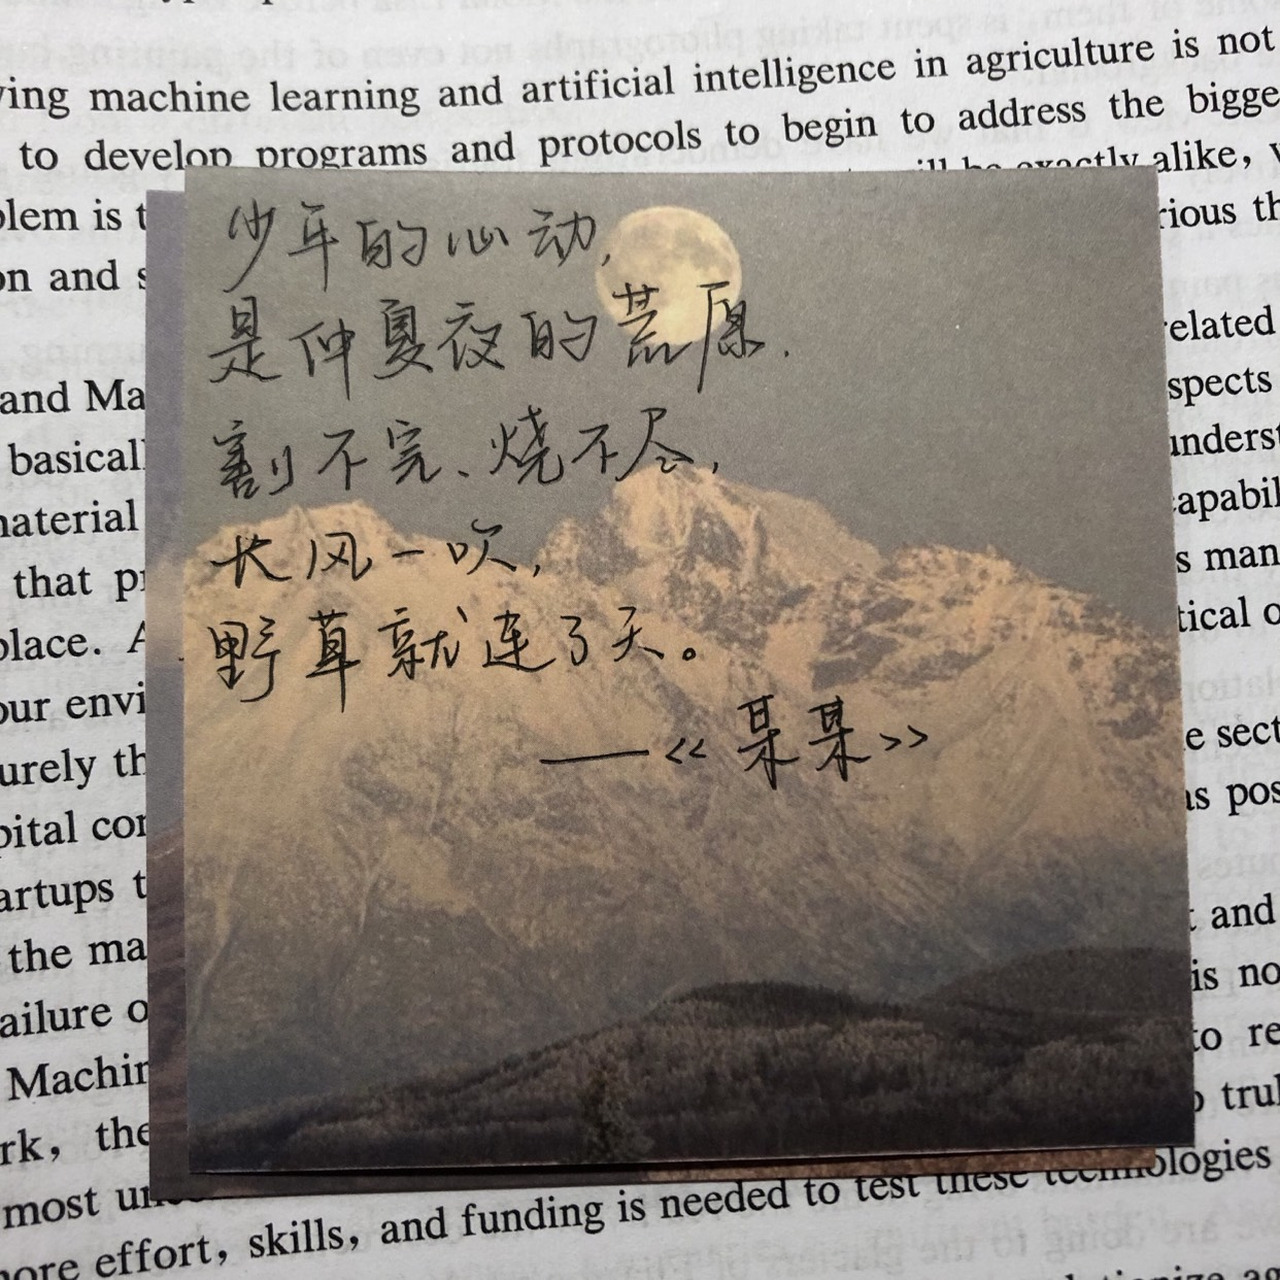 ving machine learning and artificial intelligence in agriculture is not
to develop programs and protocols to begin to address the bigge
will be exactly alike,
blem is t
rious th
on and s
少年的心动,
是仲夏夜的荒原.
割不完、烧不尽,
长风一吹,
野草就连了天。
——《某某》
elated
and Ma
spects
basical
underst
material
capabil
that pr
s man
place. A
tical o
our envi
urely th
e sect
pital cor
as pos
artups t
the ma
t and
ailure o
is no
Machin
to re
rk, the
trul
most un
ore effort, skills, and funding is needed to test these technologies